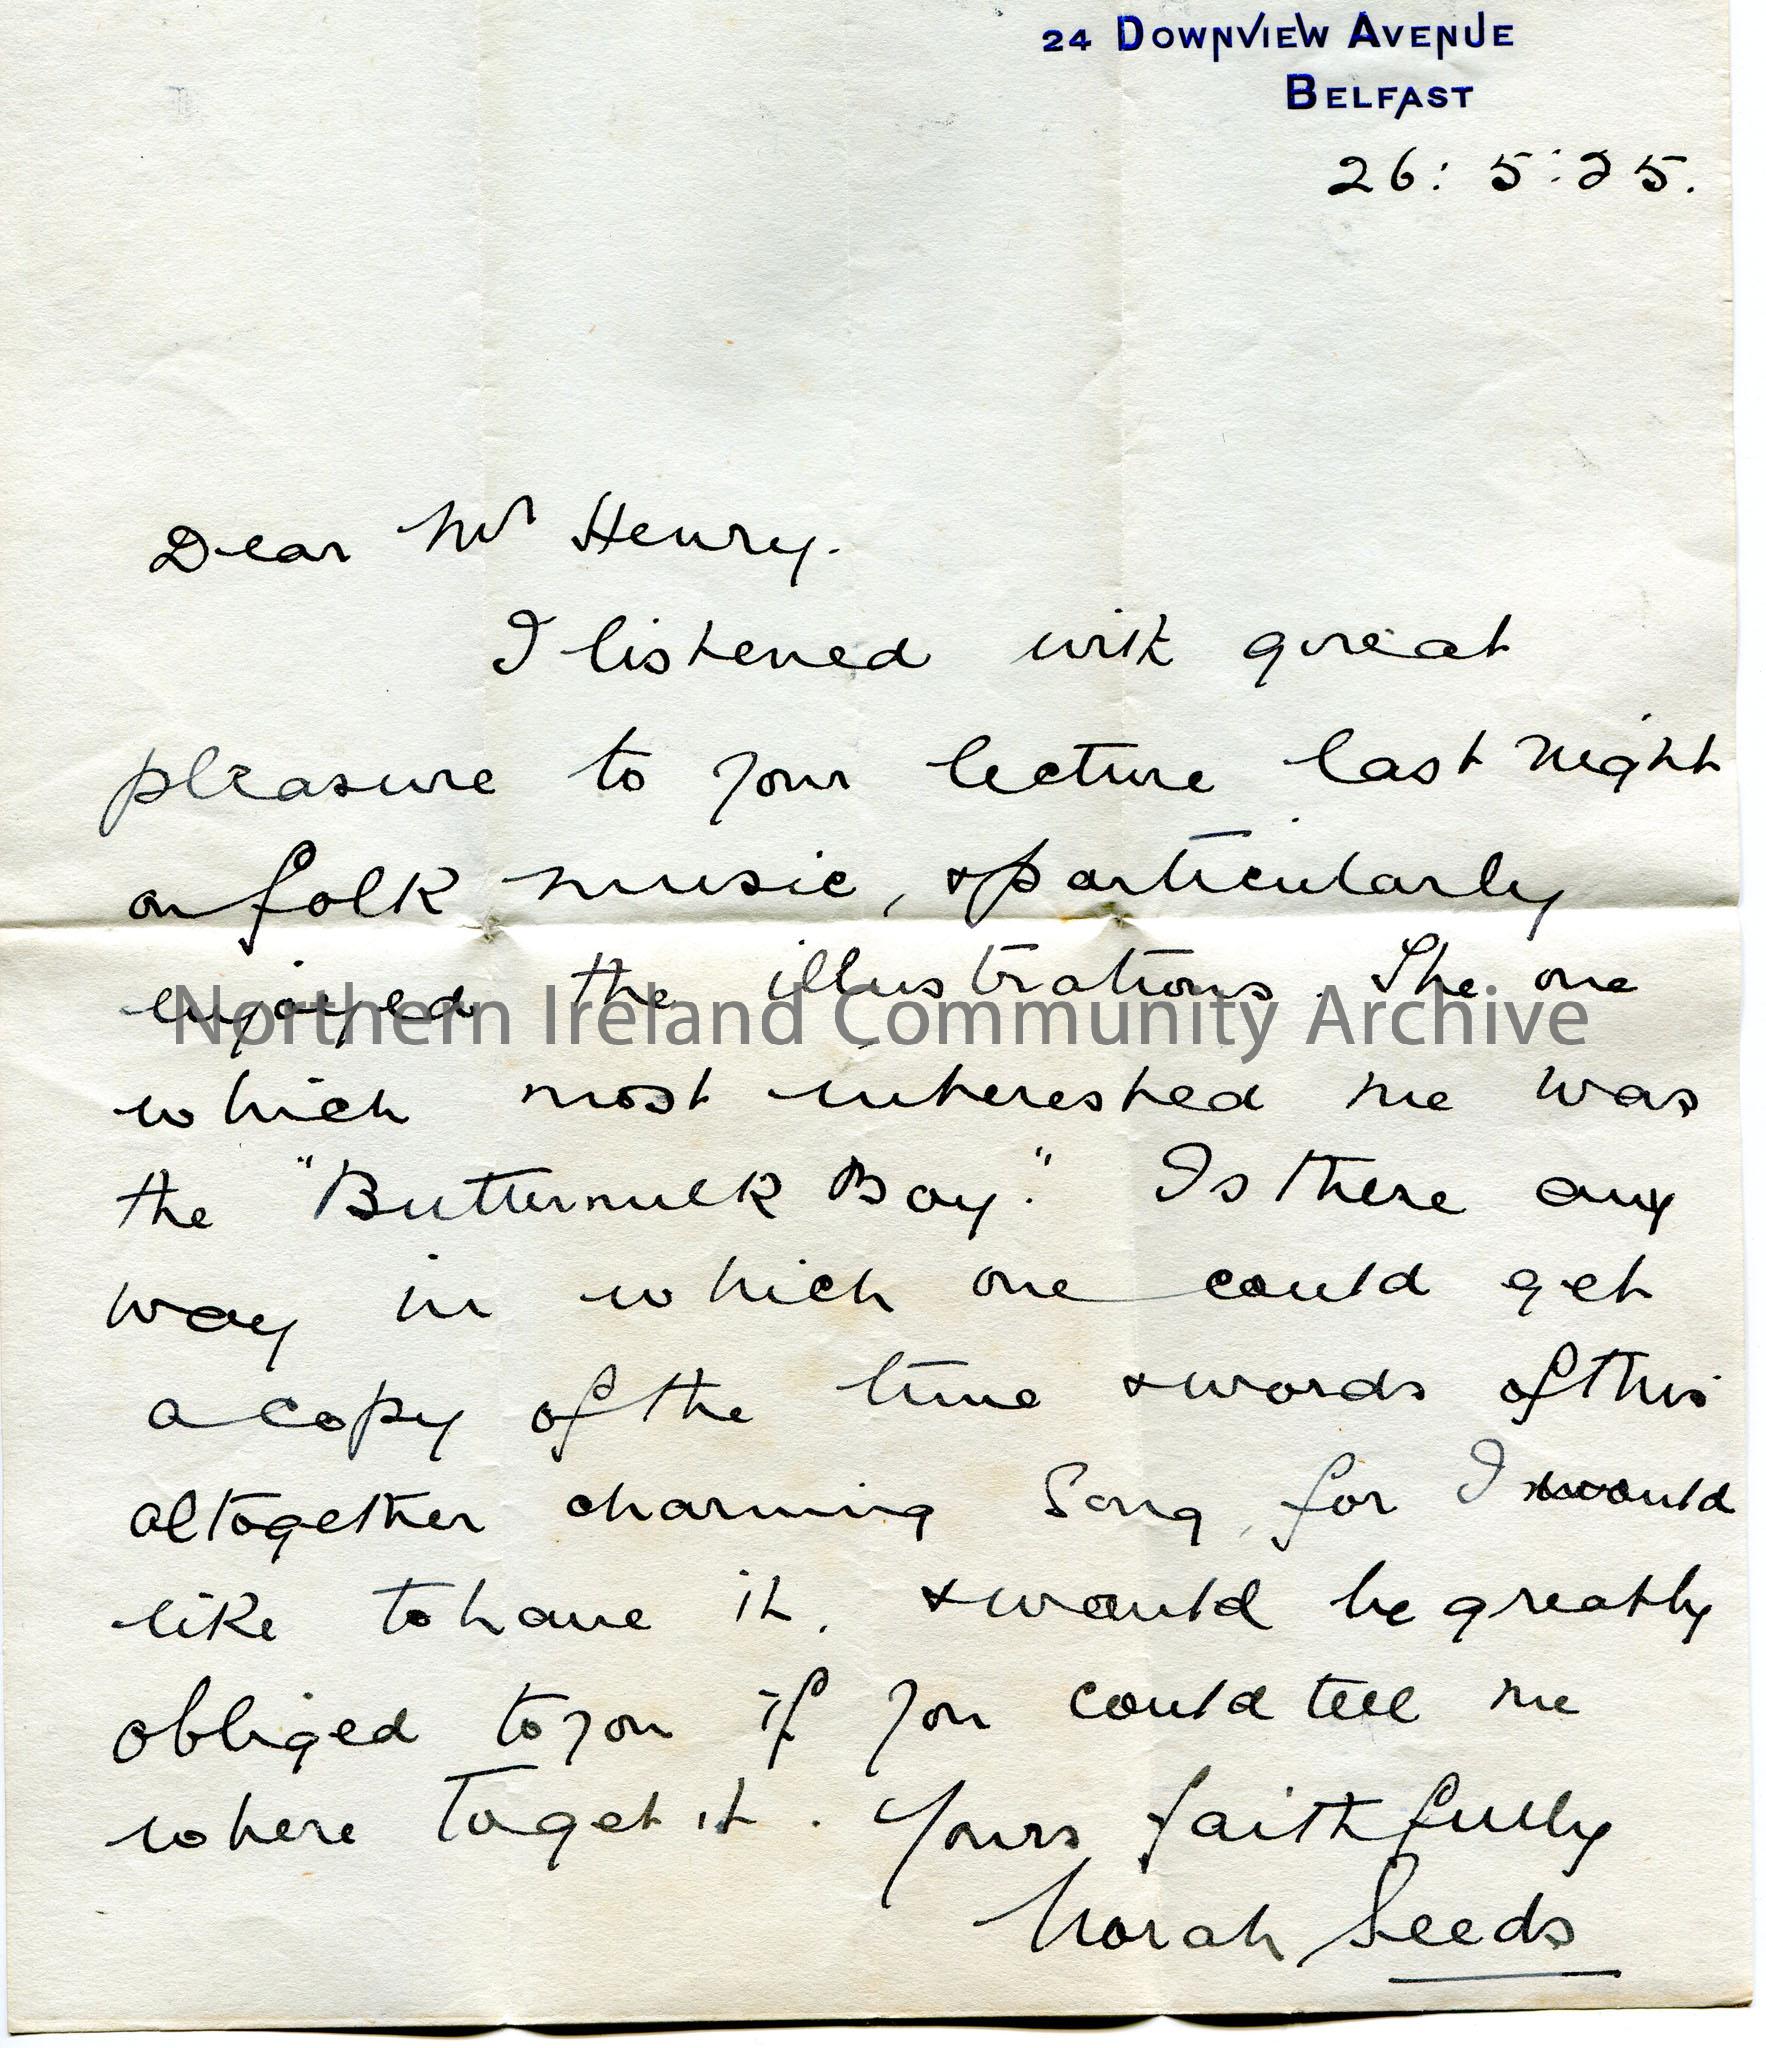 24 DOWNVIEW AVENUE
BELFAST
26: 5: 25.
Dear Mr Henry.
I listened with great
pleasure to your lecture last night
on folk music, & particularly
enjoyed the illustrations. The one
Northern Ireland Community Archive
which most interested me was
the "Buttermilk Boy." Is there any
way in which one could get
a copy of the tune & words of this
altogether charming song, for I would
like to have it, & would be greatly
obliged to you if you could tell me
where to get it. Yours faithfully
Norah Seeds